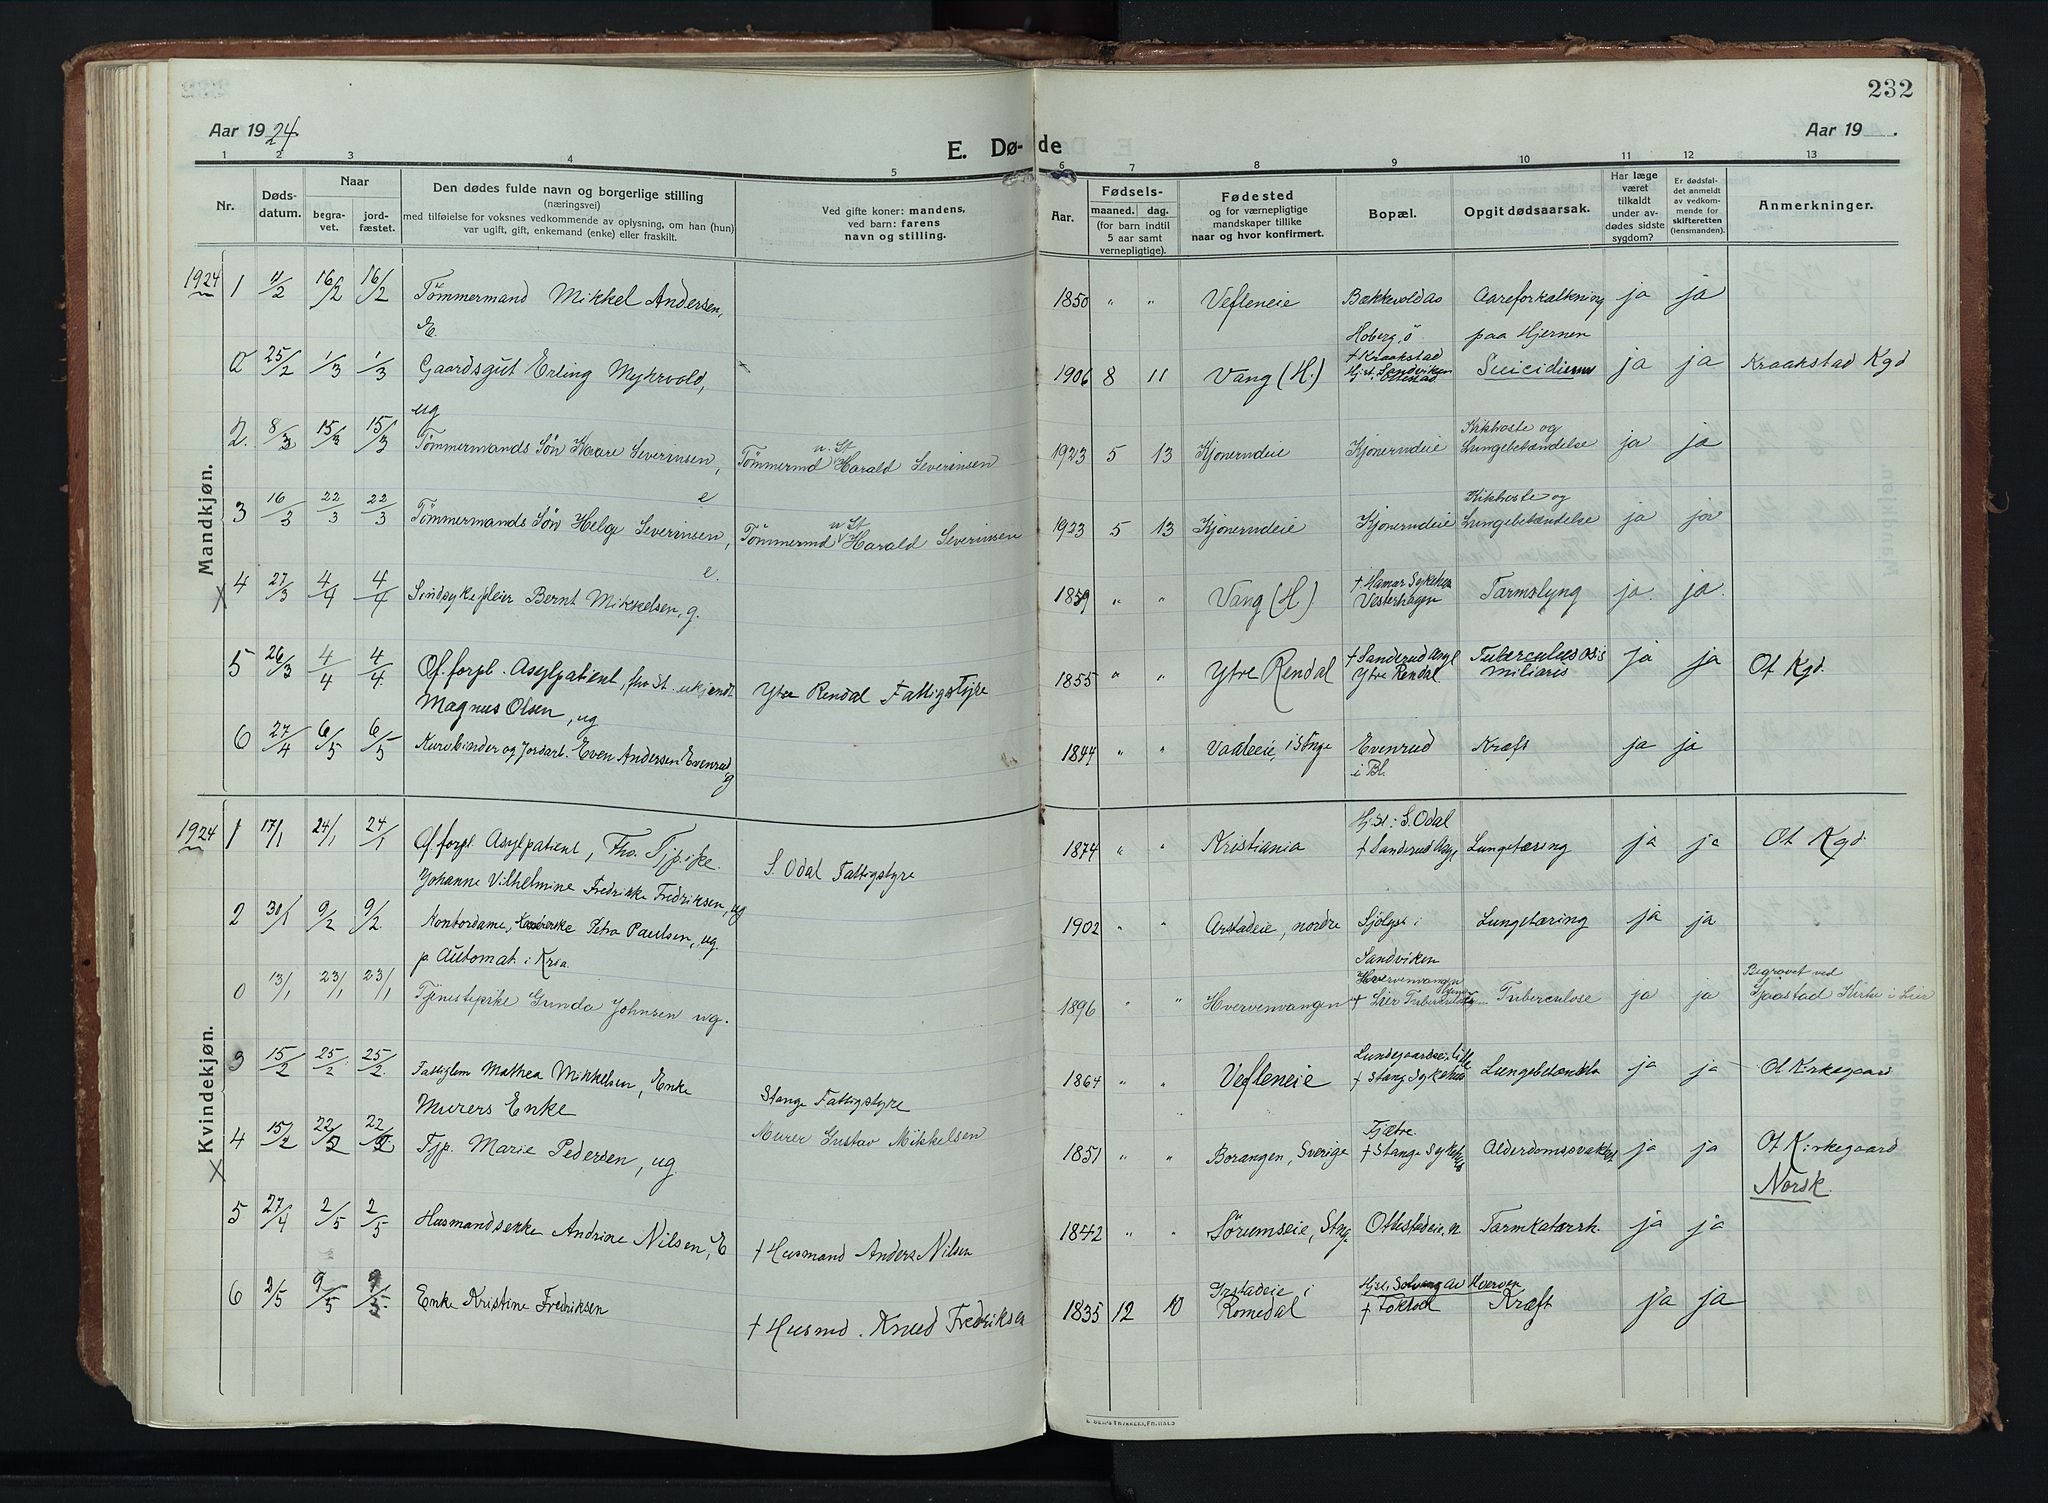 232
Aar 1924.
E. Dø-
de
Aar 19 .
1 2 3 4 5 6 7 8 9 10 11 12 13
Nr.
Døds-
datum.
Naar
begra-
vet.
jord-
fæstet.
Den dødes fulde navn og borgerlige stilling
(næringsvei)
med tilføielse for voksnes vedkommende av oplysning, om han (hun)
var ugift, gift, enkemand (enke) eller fraskilt.
Ved gifte koner: mandens,
ved barn: farens
navn og stilling.
Aar.
Fødsels-
maaned. dag.
(for barn indtil
5 aar samt
vernepligtige).
Fødested
og for værnepligtige
mandskaper tillike
naar og hvor konfirmert.
Bopæl.
Opgit dødsaarsak.
Har læge
været
tilkaldt
under av-
dødes sidste
sygdom?
Er dødsfal-
det anmeldt
av vedkom-
mende for
skifteretten
(lensmanden).
Anmerkninger.
Mandkjøn.
1924 1 11/2 16/2 16/2 Tømmermand Mikkel Andersen, 1850 " " Vefleneie Bækkevoldao Aareforkalkning ja ja
E. Hoberg, ö paa Hjernen
0 25/2 1/3 1/3 Gaardsgut Erling Myhrvold, 1906 8 11 Vang (H.) † Kraakstad Suicidium ja ja Kraakstad Kgd
ug Hjst. Sandviken Ottestad
2. 8/3 15/3 15/3 Tømmermands Søn Kaare Severinsen, Tømmermd Harald Severinsen 1923 5 13 Kjonerudeie Kjonerudeie Kikhoste og ja ja
u. St Lungebetændelse
3 16/3 22/3 22/3 Tømmermands Søn Helge Severinsen, Tømmermd Harald Severinsen 1923 5 13 Kjonerudeie Kjonerudeie Kikhoste og ja ja
e u St Lungebetændelse
e.
X 4 27/3 4/4 4/4 Sindsykepleier Bernt Mikkelsen, g. 1859 " " Vang (H) † Hamar Sykehus Tarmslyng ja ja.
Vesterhagen
5 26/3 4/4 4/4 Of. forpl. Asylpatient, fho St. ukjendt Ytre Rendal Fattigstyre 1855 " " Ytre Rendal † Sanderud Asyl Tuberculososis ja ja Ot Kgd.
Magnus Olsen, ug Ytre Rendal miliaris
6 27/4 6/5 6/5 Kurvbinder og Jordarb. Even Andersen Evenrud 1844 " " Vaaleeie, i Stange Evenrud Kræft ja ja
g i Bl.
Kvindekjøn.
1924 1 17/1 24/1 24/1 Of. forpl. Asylpatient, fho. Tjpike. S. Odal Fattigstyre 1874 " " Kristiania Hj.st: S. Odal Lungetæring ja ja Ot Kgd.
Johanne Vilhelmine Fredrikke Fredriksen, ug † Sanderud Asyl
2 30/1 9/2 9/2 Kontordame, Petra Paulsen, ug. 1902 " " Arstadeie, nordre Sjølyst i Lungetæring ja ja
p Automat. i Kria. Sandviken
0 13/1 23/1 23/1 Tjenestepike Gunda Johnsen ug. 1896 " " Hvervenvangen Hvervenvangen Tuberculose ja ja Begravet ved
† Lier Sjaastad Kirke i Lier
3 15/2 25/2. 25/2. Fattiglem Mathea Mikkelsen, Enke Stange Fattigstyre 1864 " " Vefleneie Lundegaardseie, lille Lungebetændelse ja ja Ot Kirkegaard
Murers Enke Murer Gustav Mikkelsen † Stange Sykehus
X 4 15/2 22/2 22/2 Tjp. Marie Pedersen, ug 1851 " " Borangen, Sverige Fjætre. Alderdomssvakhet ja ja Ot Kirkegaard
† Stange Sykehus Norsk.
5 27/4 2/5 2/5 Husmandsenke Andrine Nilsen, E † Husmand Anders Nilsen 1842 " " Sørumseie, Stge. Ottestadeie, n Tarmkatarrh. ja ja
6 2/5 9/5 9/5 Enke Kristine Fredriksen † Husmd. Knud Fredriksen 1835 12 10 Irstadeie i Romedal Hjst. Solvang av Hverven Kræft ja ja
† Toktok
E. SEM'S TRYKKERI, FR.HALD